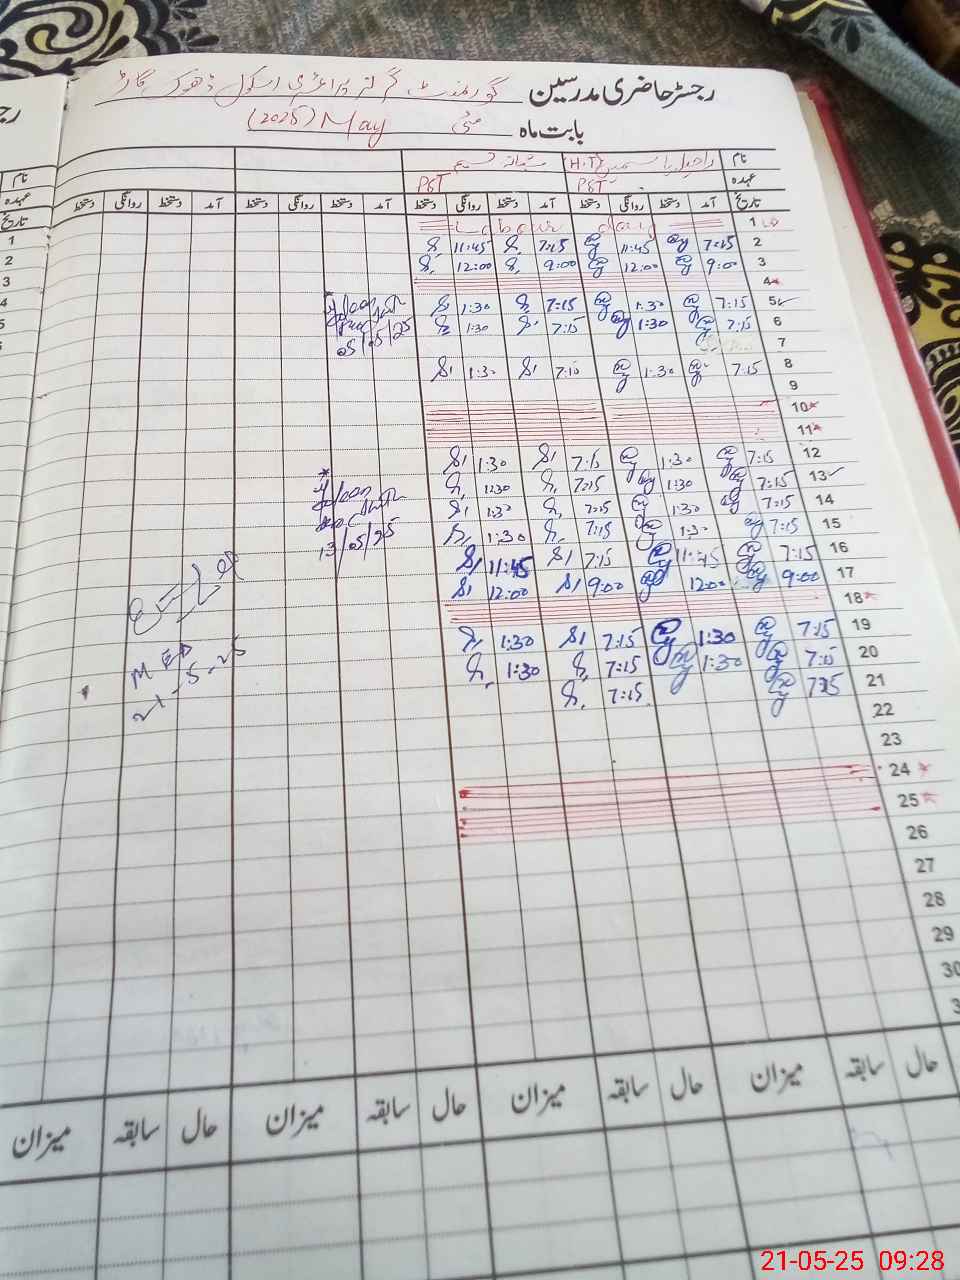 رجسٹر حاضری مدرسین گورنمنٹ گرلز پرائمری اسکول ڈھوک
بابت ماہ مئی May (2025)
نام راحیلہ یاسمین (H.T) شبانہ نسیم
عہدہ PST PST
تاریخ آمد دستخط روانگی دستخط آمد دستخط روانگی دستخط آمد دستخط روانگی دستخط آمد دستخط روانگی دستخط
1 Labour day
2 7:15 11:45 7:15 11:45
3 9:00 12:00 9:00 12:00
4
5 7:15 1:30 7:15 1:30
6 7:15 1:30 7:15 1:30
05/05/25
7
8 7:15 1:30 7:15 1:30
9
10
11
12 7:15 1:30 7:15 1:30
13 7:15 1:30 7:15 1:30
14 7:15 1:30 7:15 1:30
15 7:15 1:30 7:15 1:30
13/05/25
16 7:15 11:45 7:15 11:45
17 9:00 12:00 9:00 12:00
18
19 7:15 1:30 7:15 1:30
20 7:15 1:30 7:15 1:30
21 7:15 7:15
21-5-25
22
23
24
25
26
27
28
29
30
حال سابقہ میزان حال سابقہ میزان حال سابقہ میزان حال سابقہ میزان
نام
عہدہ
تاریخ
1
2
3
4
5
21-05-25 09:28